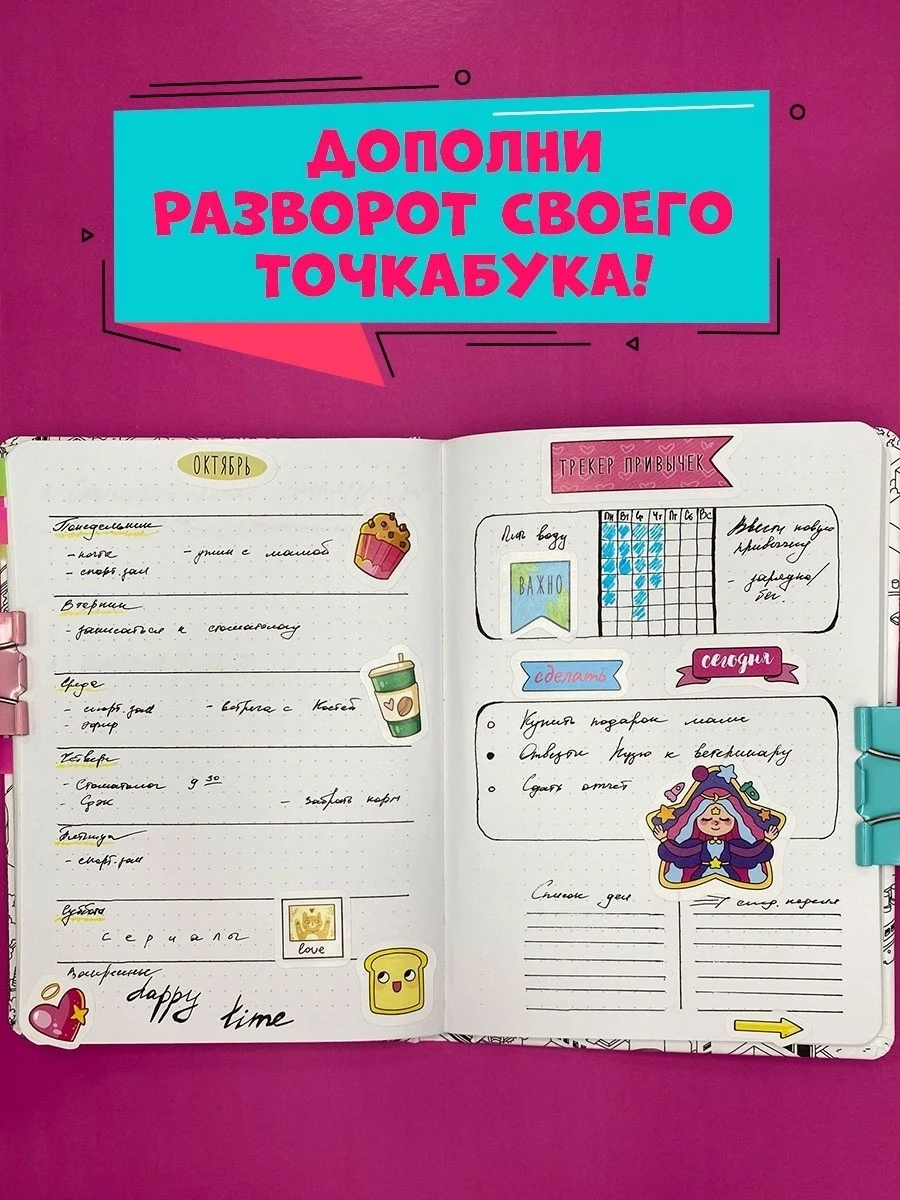 ДОПОЛНИ
РАЗВОРОТ СВОЕГО
ТОЧКАБУКА!
ОКТЯБРЬ
Понедельник
- почта - ужин с мамой
- спорт. зал
Вторник
- записаться к стоматологу
Среда
- спорт. зал - встреча с Костей
- эфир
Четверг
- Стоматолог 9 30
- Сдэк - забрать корм
Пятница
- спорт. зал
Суббота
сериалы
love
Воскресенье
Happy
time
ТРЕКЕР ПРИВЫЧЕК
Пить воду
ВАЖНО
Пн Вт Ср Чт Пт Сб Вс
Ввести новую
привычку
- зарядка/
бег.
сделать
сегодня
Купить подарок маме
Отвезти Кузю к ветеринару
Сдать отчёт
Список дел
след. неделя